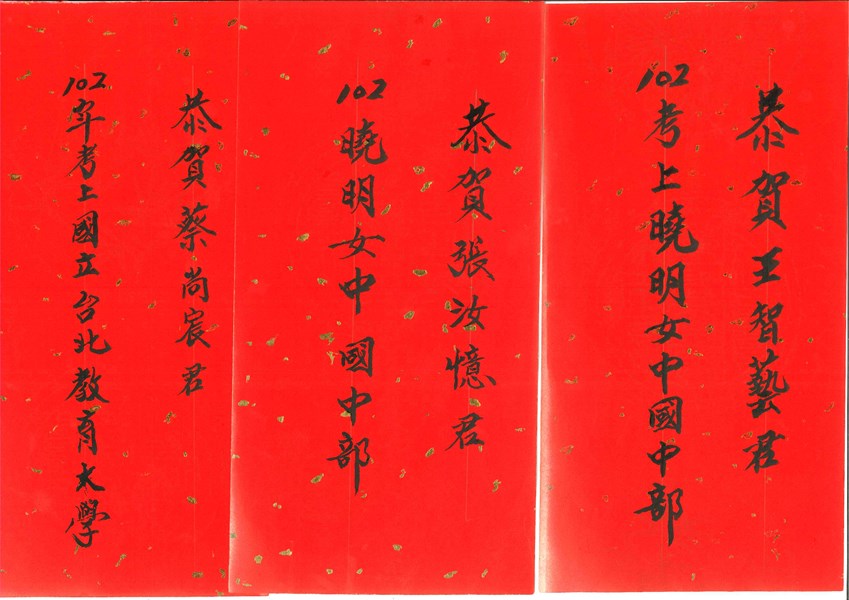 恭賀王智藝君
102考上曉明女中國中部
恭賀張汝憶君
102曉明女中國中部
恭賀蔡尚宸君
102年考上國立台北教育大學